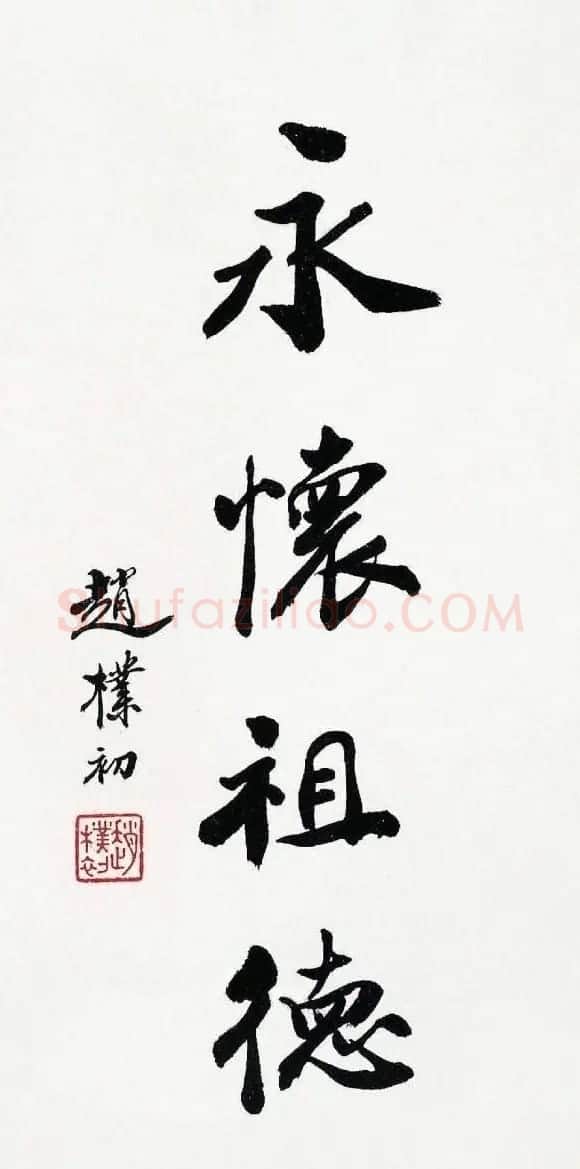 永懷祖德
趙樸初
趙樸初
Shufaziliao.COM